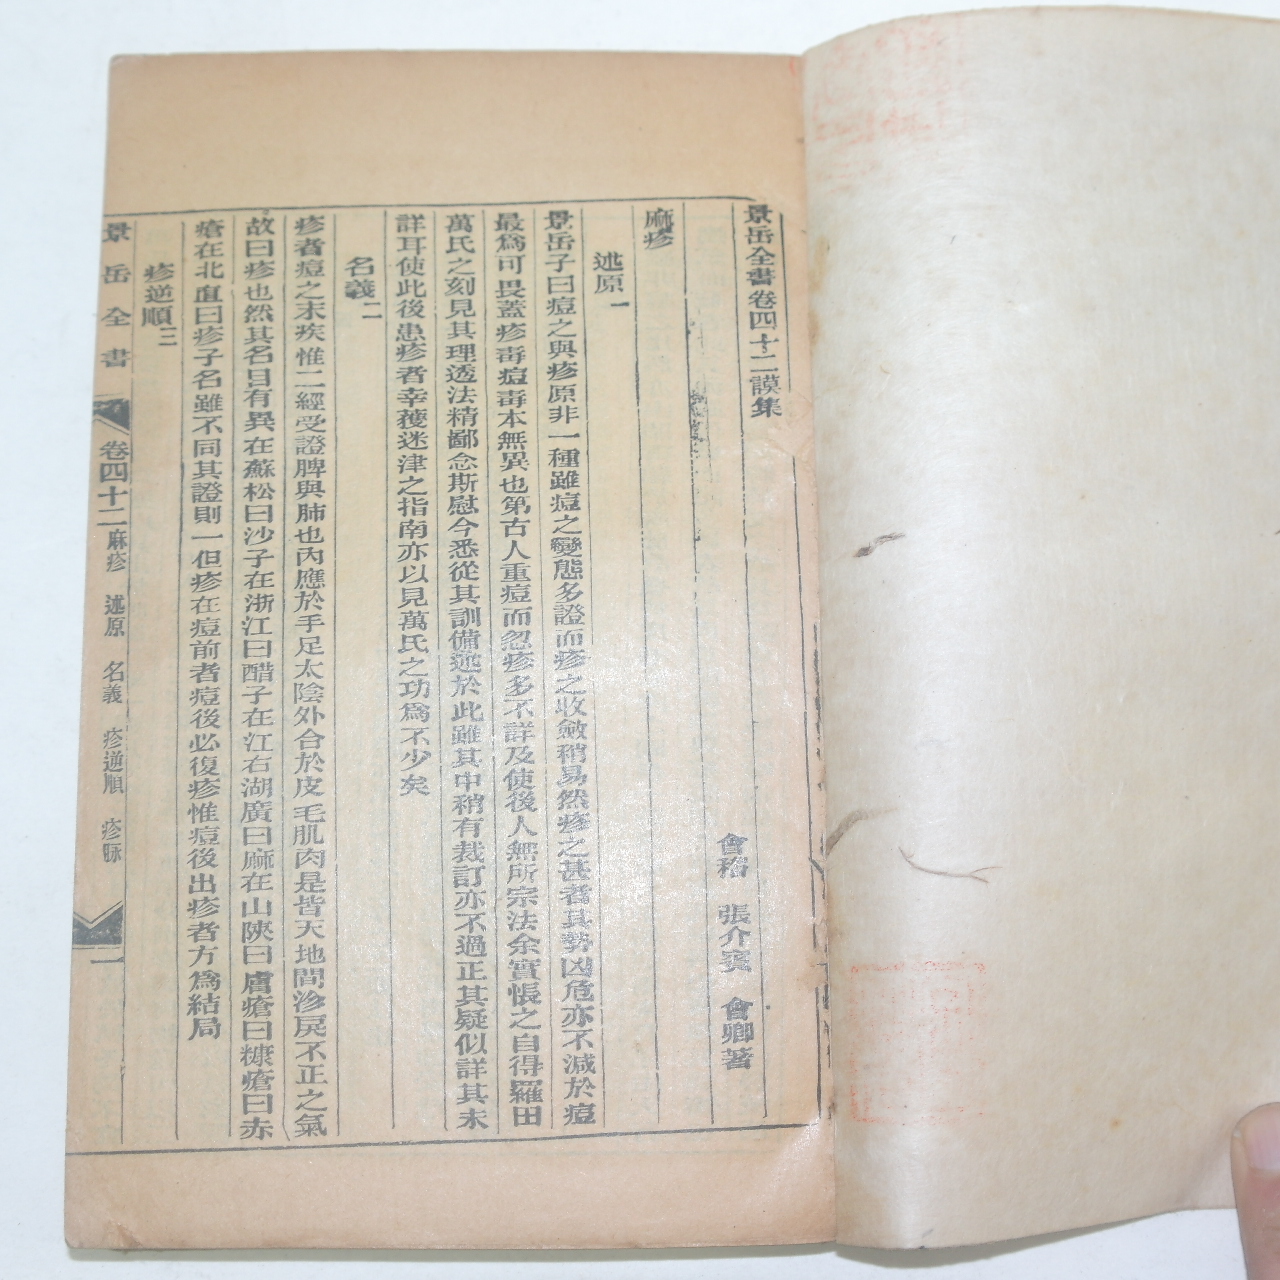 景岳全書卷四十二謨集
會稽 張介賓 會卿著
麻疹
述原一
景岳子曰痘之與疹原非一種雖痘之變態多證而疹之收斂稍易然疹之甚者其勢凶危亦不減於痘
最爲可畏蓋疹毒痘毒本無異也第古人重痘而忽疹多不詳及使後人無所宗法余實悵之自得羅田
萬氏之刻見其理透法精鄙念斯慰今悉從其訓備述於此雖其中稍有裁訂亦不過正其疑似詳其未
詳耳使此後患疹者幸獲迷津之指南亦以見萬氏之功爲不少矣
名義二
疹者痘之末疾惟二經受證脾與肺也內應於手足太陰外合於皮毛肌肉是皆天地間沴戾不正之氣
故曰疹也然其名目有異在蘇松曰沙子在浙江曰醋子在江右湖廣曰麻在山陝曰膚瘡曰糠瘡曰赤
瘡在北直曰疹子名雖不同其證則一但疹在痘前者痘後必復疹惟痘後出疹者方爲結局
疹逆順三
景岳全書 卷四十二 麻疹 述原 名義 疹逆順 疹脈 一